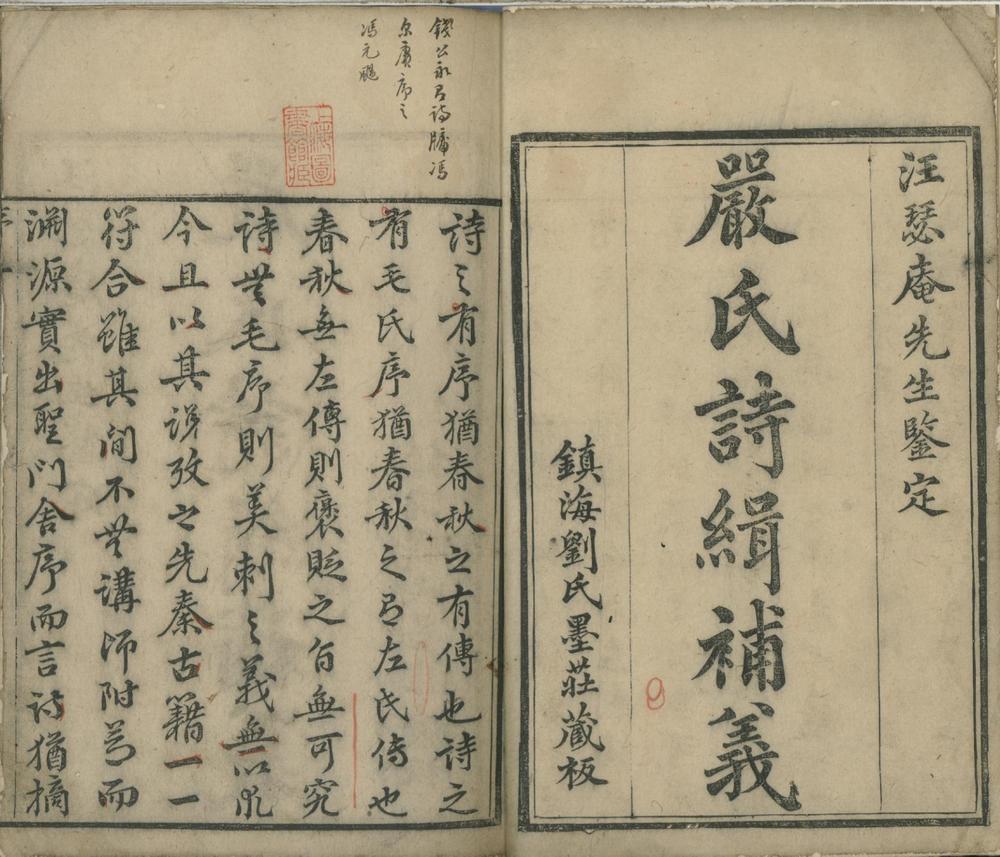 汪瑟庵先生鑒定
嚴氏詩緝補義
鎮海劉氏墨莊藏板
馮元颷
上海圖
書館藏
詩之有序猶春秋之有傳也詩之
有毛氏序猶春秋之有左氏傳也
春秋無左傳則褒貶之旨無可究
詩無毛序則美刺之義無以明
今且以其說攷之先秦古籍一一
符合雖其間不無講師附益而
溯源實出聖門舍序而言詩猶摘